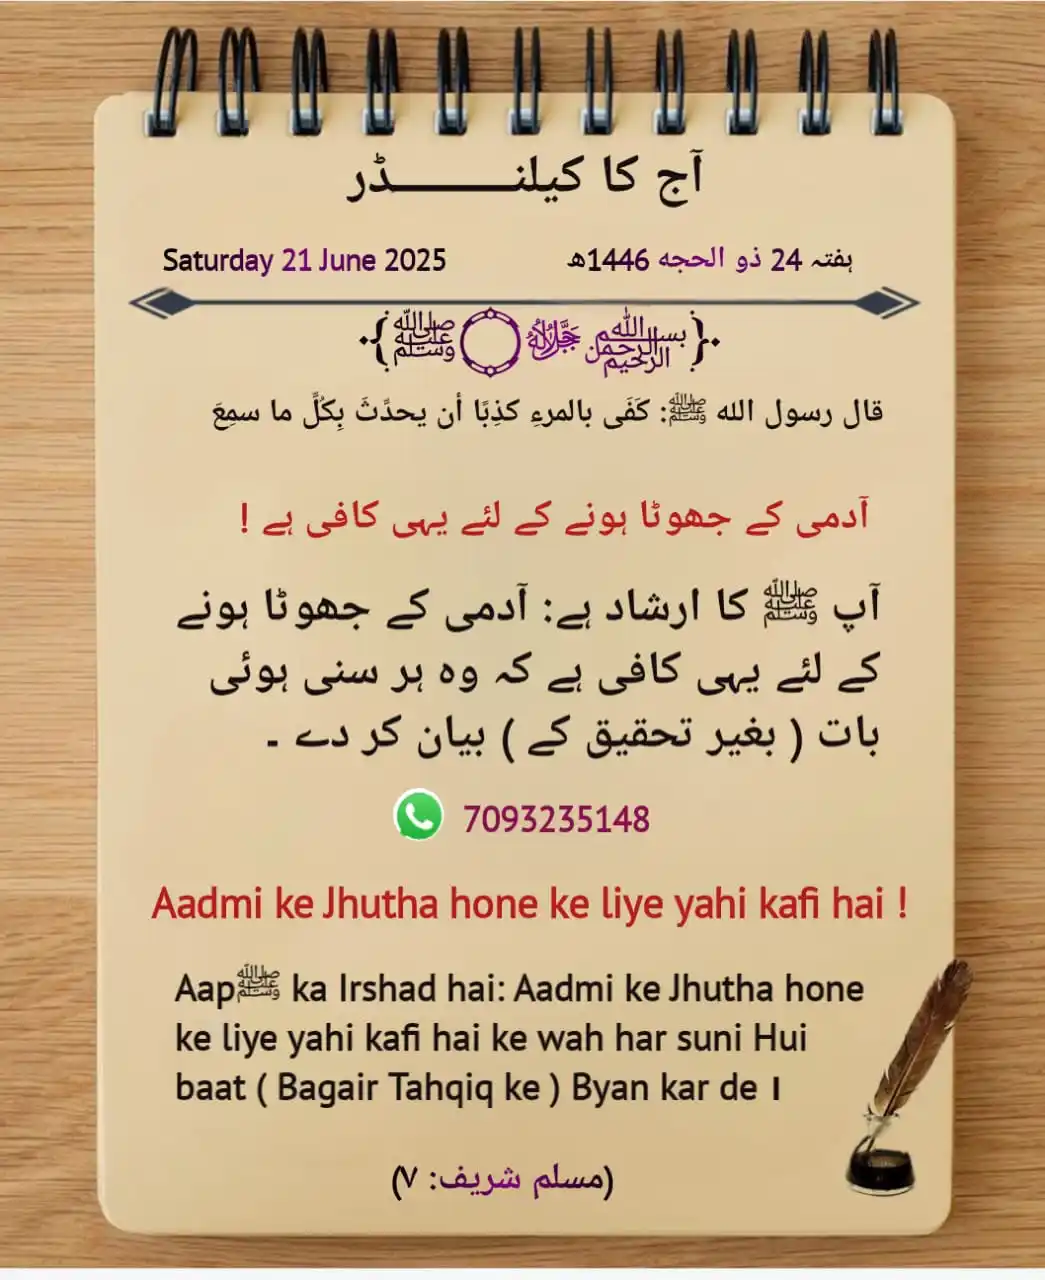 آج کا کیلنــــــــــڈر
Saturday 21 June 2025
ہفتہ 24 ذو الحجه 1446ھ
﷽ ﷻ ﷺ
قال رسول الله ﷺ: كَفَى بالمرءِ كذِبًا أن يحدِّثَ بِكُلِّ ما سمِعَ
آدمی کے جھوٹا ہونے کے لئے یہی کافی ہے !
آپ ﷺ کا ارشاد ہے: آدمی کے جھوٹا ہونے
کے لئے یہی کافی ہے کہ وہ ہر سنی ہوئی
بات ( بغیر تحقیق کے ) بیان کر دے ۔
7093235148
Aadmi ke Jhutha hone ke liye yahi kafi hai !
Aapﷺ ka Irshad hai: Aadmi ke Jhutha hone
ke liye yahi kafi hai ke wah har suni Hui
baat ( Bagair Tahqiq ke ) Byan kar de ।
(مسلم شریف: ٧)